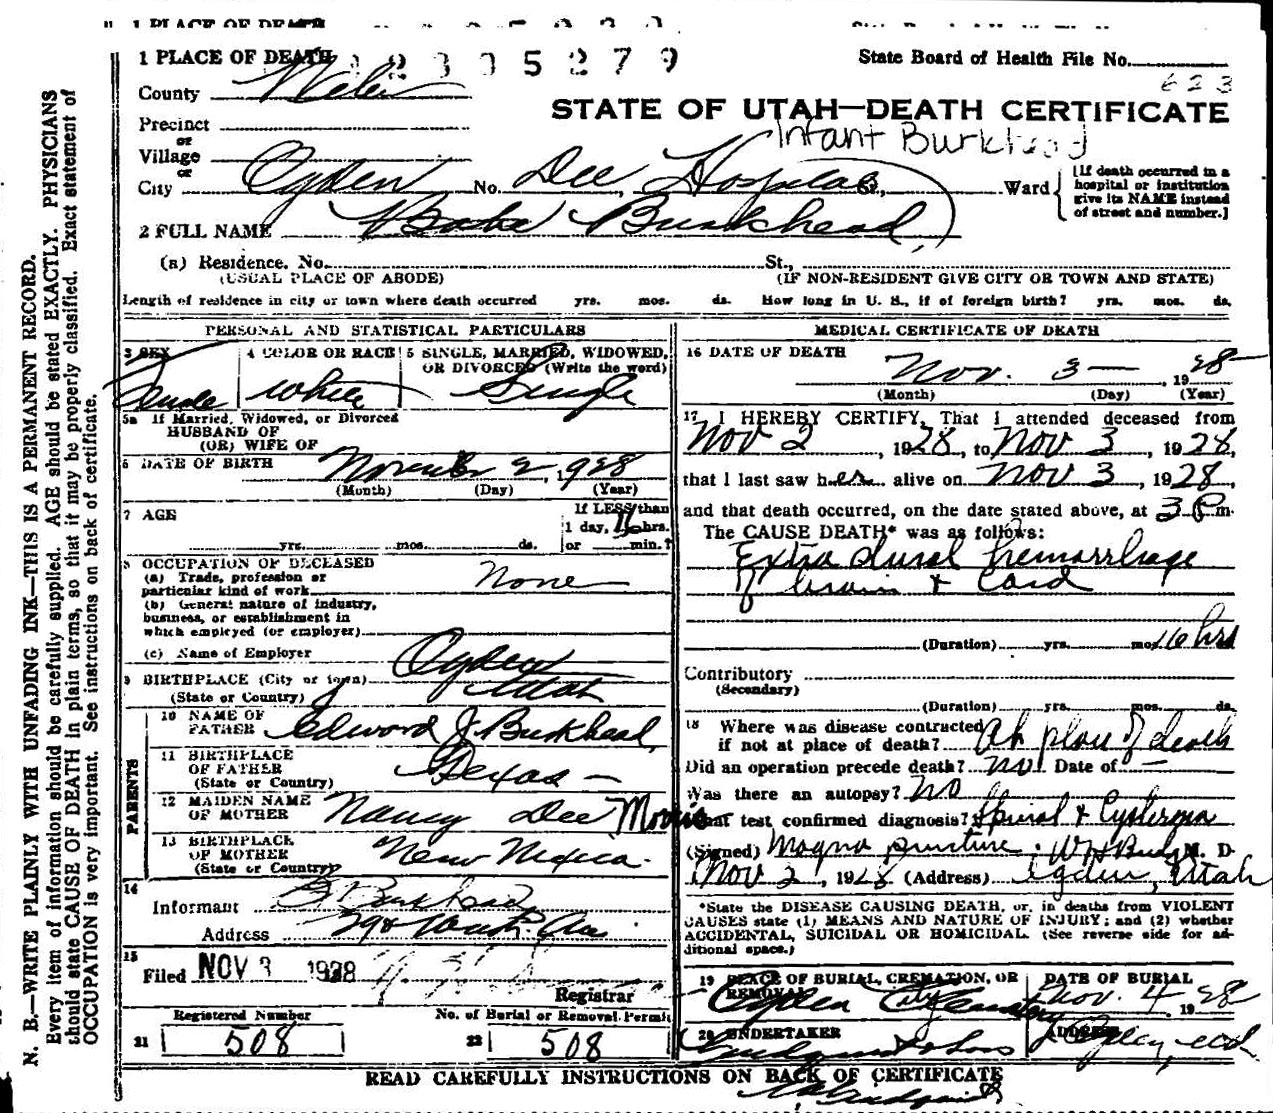 1 PLACE OF DEATH 2305279
State Board of Health File No.
623
County Weber
STATE OF UTAH—DEATH CERTIFICATE
Precinct
or
Village
Infant Burkhead
or
City Ogden No. Dee Hospital, Ward
[If death occurred in a
hospital or institution
give its NAME instead
of street and number.]
2 FULL NAME Burkhead
(a) Residence. No. St.,
(USUAL PLACE OF ABODE) (IF NON-RESIDENT GIVE CITY OR TOWN AND STATE)
Length of residence in city or town where death occurred yrs. mos. ds. How long in U. S., if of foreign birth? yrs. mos. ds.
PERSONAL AND STATISTICAL PARTICULARS
3 SEX
Female
4 COLOR OR RACE
White
5 SINGLE, MARRIED, WIDOWED,
OR DIVORCED (Write the word)
Single
5a If Married, Widowed, or Divorced
HUSBAND OF
(OR) WIFE OF
6 DATE OF BIRTH November 2, 1928
(Month) (Day) (Year)
7 AGE
yrs. mos. ds.
If LESS than
1 day, 16 hrs.
or min.?
8 OCCUPATION OF DECEASED
(a) Trade, profession or
particular kind of work None
(b) General nature of industry,
business, or establishment in
which employed (or employer)
(c) Name of Employer
9 BIRTHPLACE (City or town) Ogden
(State or Country) Utah
PARENTS
10 NAME OF
FATHER Edward J. Burkhead
11 BIRTHPLACE
OF FATHER
(State or Country) Texas —
12 MAIDEN NAME
OF MOTHER Nancy Dee Morris
13 BIRTHPLACE
OF MOTHER
(State or Country) New Mexico
14
Informant Burkhead
Address Wash. Ave
15
Filed NOV 3 1928
Registrar
Registered Number
21 508
No. of Burial or Removal Permit
22 508
MEDICAL CERTIFICATE OF DEATH
16 DATE OF DEATH
Nov. 3 — , 1928
(Month) (Day) (Year)
17 I HEREBY CERTIFY, That I attended deceased from
Nov 2, 1928, to Nov 3, 1928,
that I last saw her alive on Nov 3, 1928,
and that death occurred, on the date stated above, at 3 P m.
The CAUSE DEATH* was as follows:
Extra dural hemorrhage
of brain & Cord
(Duration) yrs. mos. 16 hrs
Contributory
(Secondary)
(Duration) yrs. mos. ds.
18 Where was disease contracted
if not at place of death? At place of death
Did an operation precede death? No. Date of —
Was there an autopsy? No
What test confirmed diagnosis? Spinal & Cysterna
(Signed) Magna puncture. M. D.
Nov 2, 1928 (Address) Ogden, Utah
*State the DISEASE CAUSING DEATH, or, in deaths from VIOLENT
CAUSES state (1) MEANS AND NATURE OF INJURY; and (2) whether
ACCIDENTAL, SUICIDAL OR HOMICIDAL. (See reverse side for ad-
ditional space.)
19 PLACE OF BURIAL, CREMATION, OR
REMOVAL
Ogden City Cemetery
DATE OF BURIAL
Nov. 4 1928
20 UNDERTAKER
ADDRESS
Ogden, Utah
READ CAREFULLY INSTRUCTIONS ON BACK OF CERTIFICATE
N. B.—WRITE PLAINLY WITH UNFADING INK—THIS IS A PERMANENT RECORD.
Every item of information should be carefully supplied. AGE should be stated EXACTLY. PHYSICIANS
should state CAUSE OF DEATH in plain terms, so that it may be properly classified. Exact statement of
OCCUPATION is very important. See instructions on back of certificate.